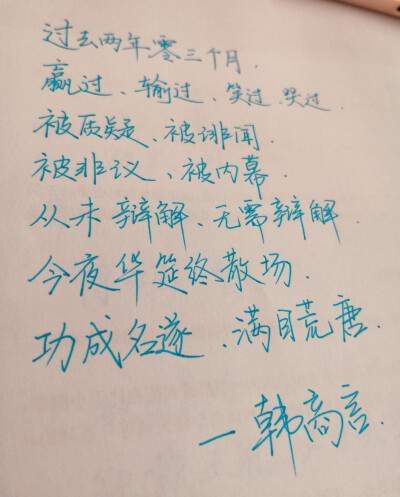 过去两年零三个月.
赢过、输过、笑过.哭过.
被质疑、被诽闻.
被非议、被内幕.
从未辩解、无需辩解.
今夜华筵终散场.
功成名遂、满目荒唐.
—韩商言.